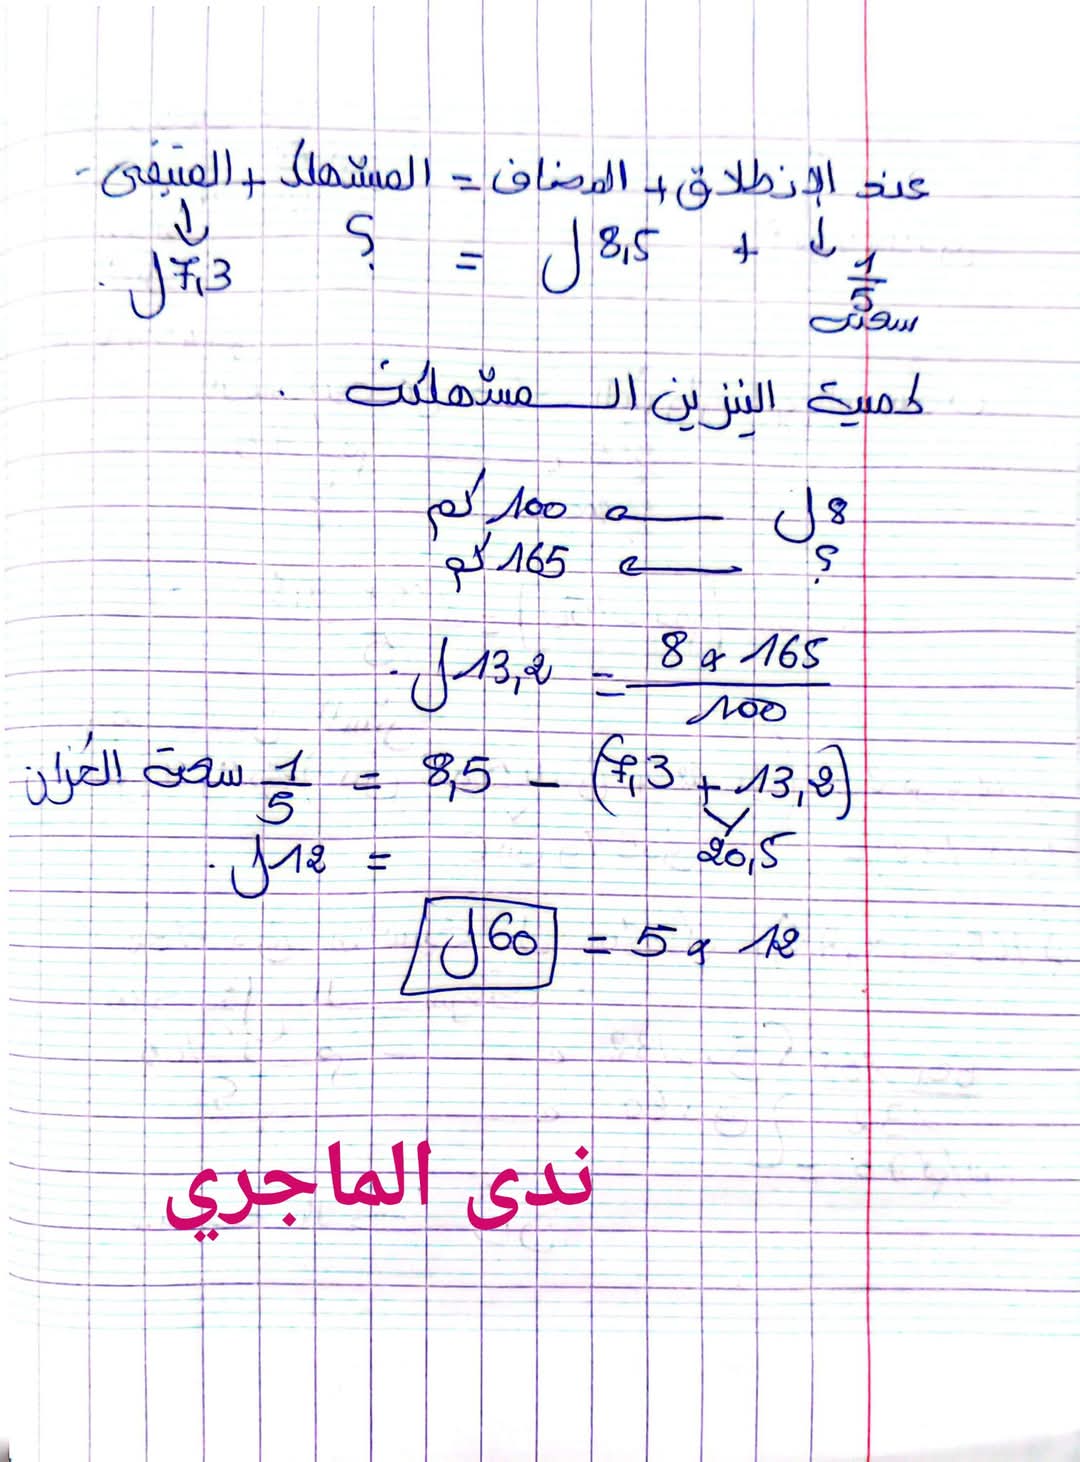 عند الإنطلاق + المضاف = المستهلك + المتبقى.
↓ 1/5 سعته + 8,5ل = ؟ ↓ 7,3ل.
كمية البنزين المستهلكة.
8ل ← 100 كم
؟ ← 165 كم
8 × 165 / 100 = 13,2ل.
(7,3 + 13,2) − 8,5 = 1/5 سعة الخزان
20,5
= 12ل.
12 × 5 = 60ل
ندى الماجري